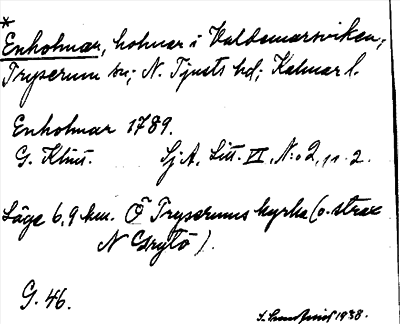 *
Enholmar, holmar i Valdemarsviken,
Tryserum sn; N. Tjusts hd; Kalmar l.
Enholmar 1789.
G. Klint. Sj A, Litt. VI, N:o 2, 11. 2.
Läge 6,9 km. Ö Tryserums kyrka (o. strax
N Grytö).
G. 46.
1938.